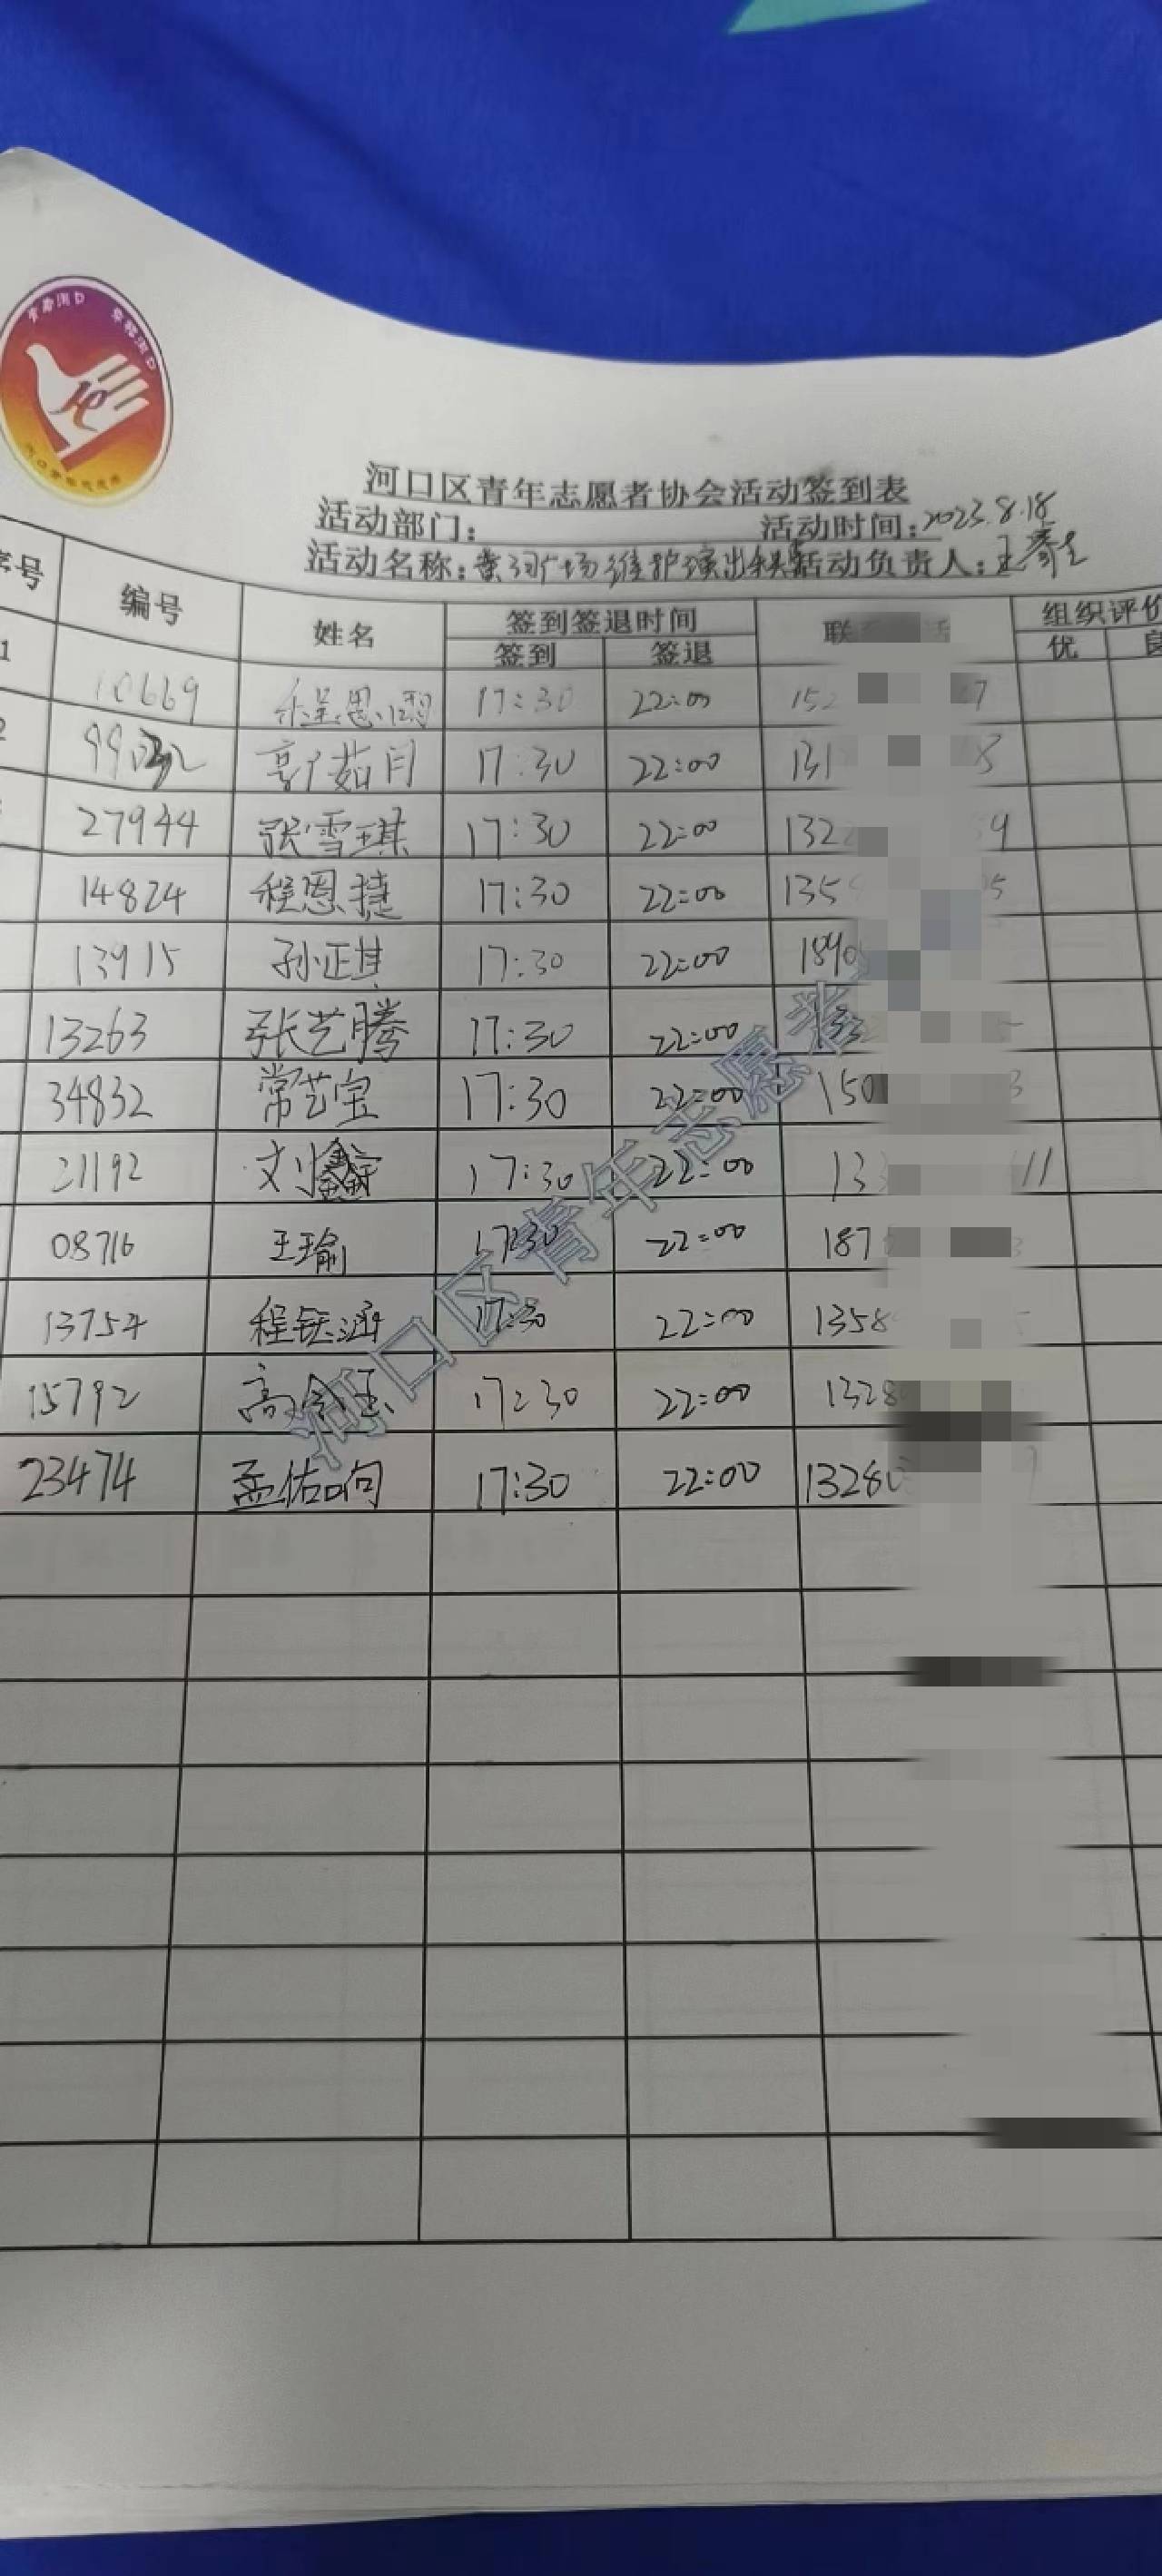 河口区青年志愿者协会活动签到表
活动部门： 活动时间：2023.8.18
活动名称：黄河广场维护演出秩序 活动负责人：王
序号 编号 姓名 签到签退时间 联 组织评价
签到 签退 优 良
1 10669 程恩 17:30 22:00 152 7
2 99 郭茹月 17:30 22:00 131 8
27944 张雪琪 17:30 22:00 132 9
14824 程恩捷 17:30 22:00 135 5
13915 孙正其 17:30 22:00 1890
13263 张艺腾 17:30 22:00
34832 常艺宝 17:30 22:00 150 3
21192 刘鑫 17:30 22:00 13 11
08716 王瑜 17:30 22:00 187 3
13754 程钰涵 17:30 22:00 1358
15792 高金玉 17:30 22:00 1328
23474 孟佑响 17:30 22:00 13280
河口区青年志愿者